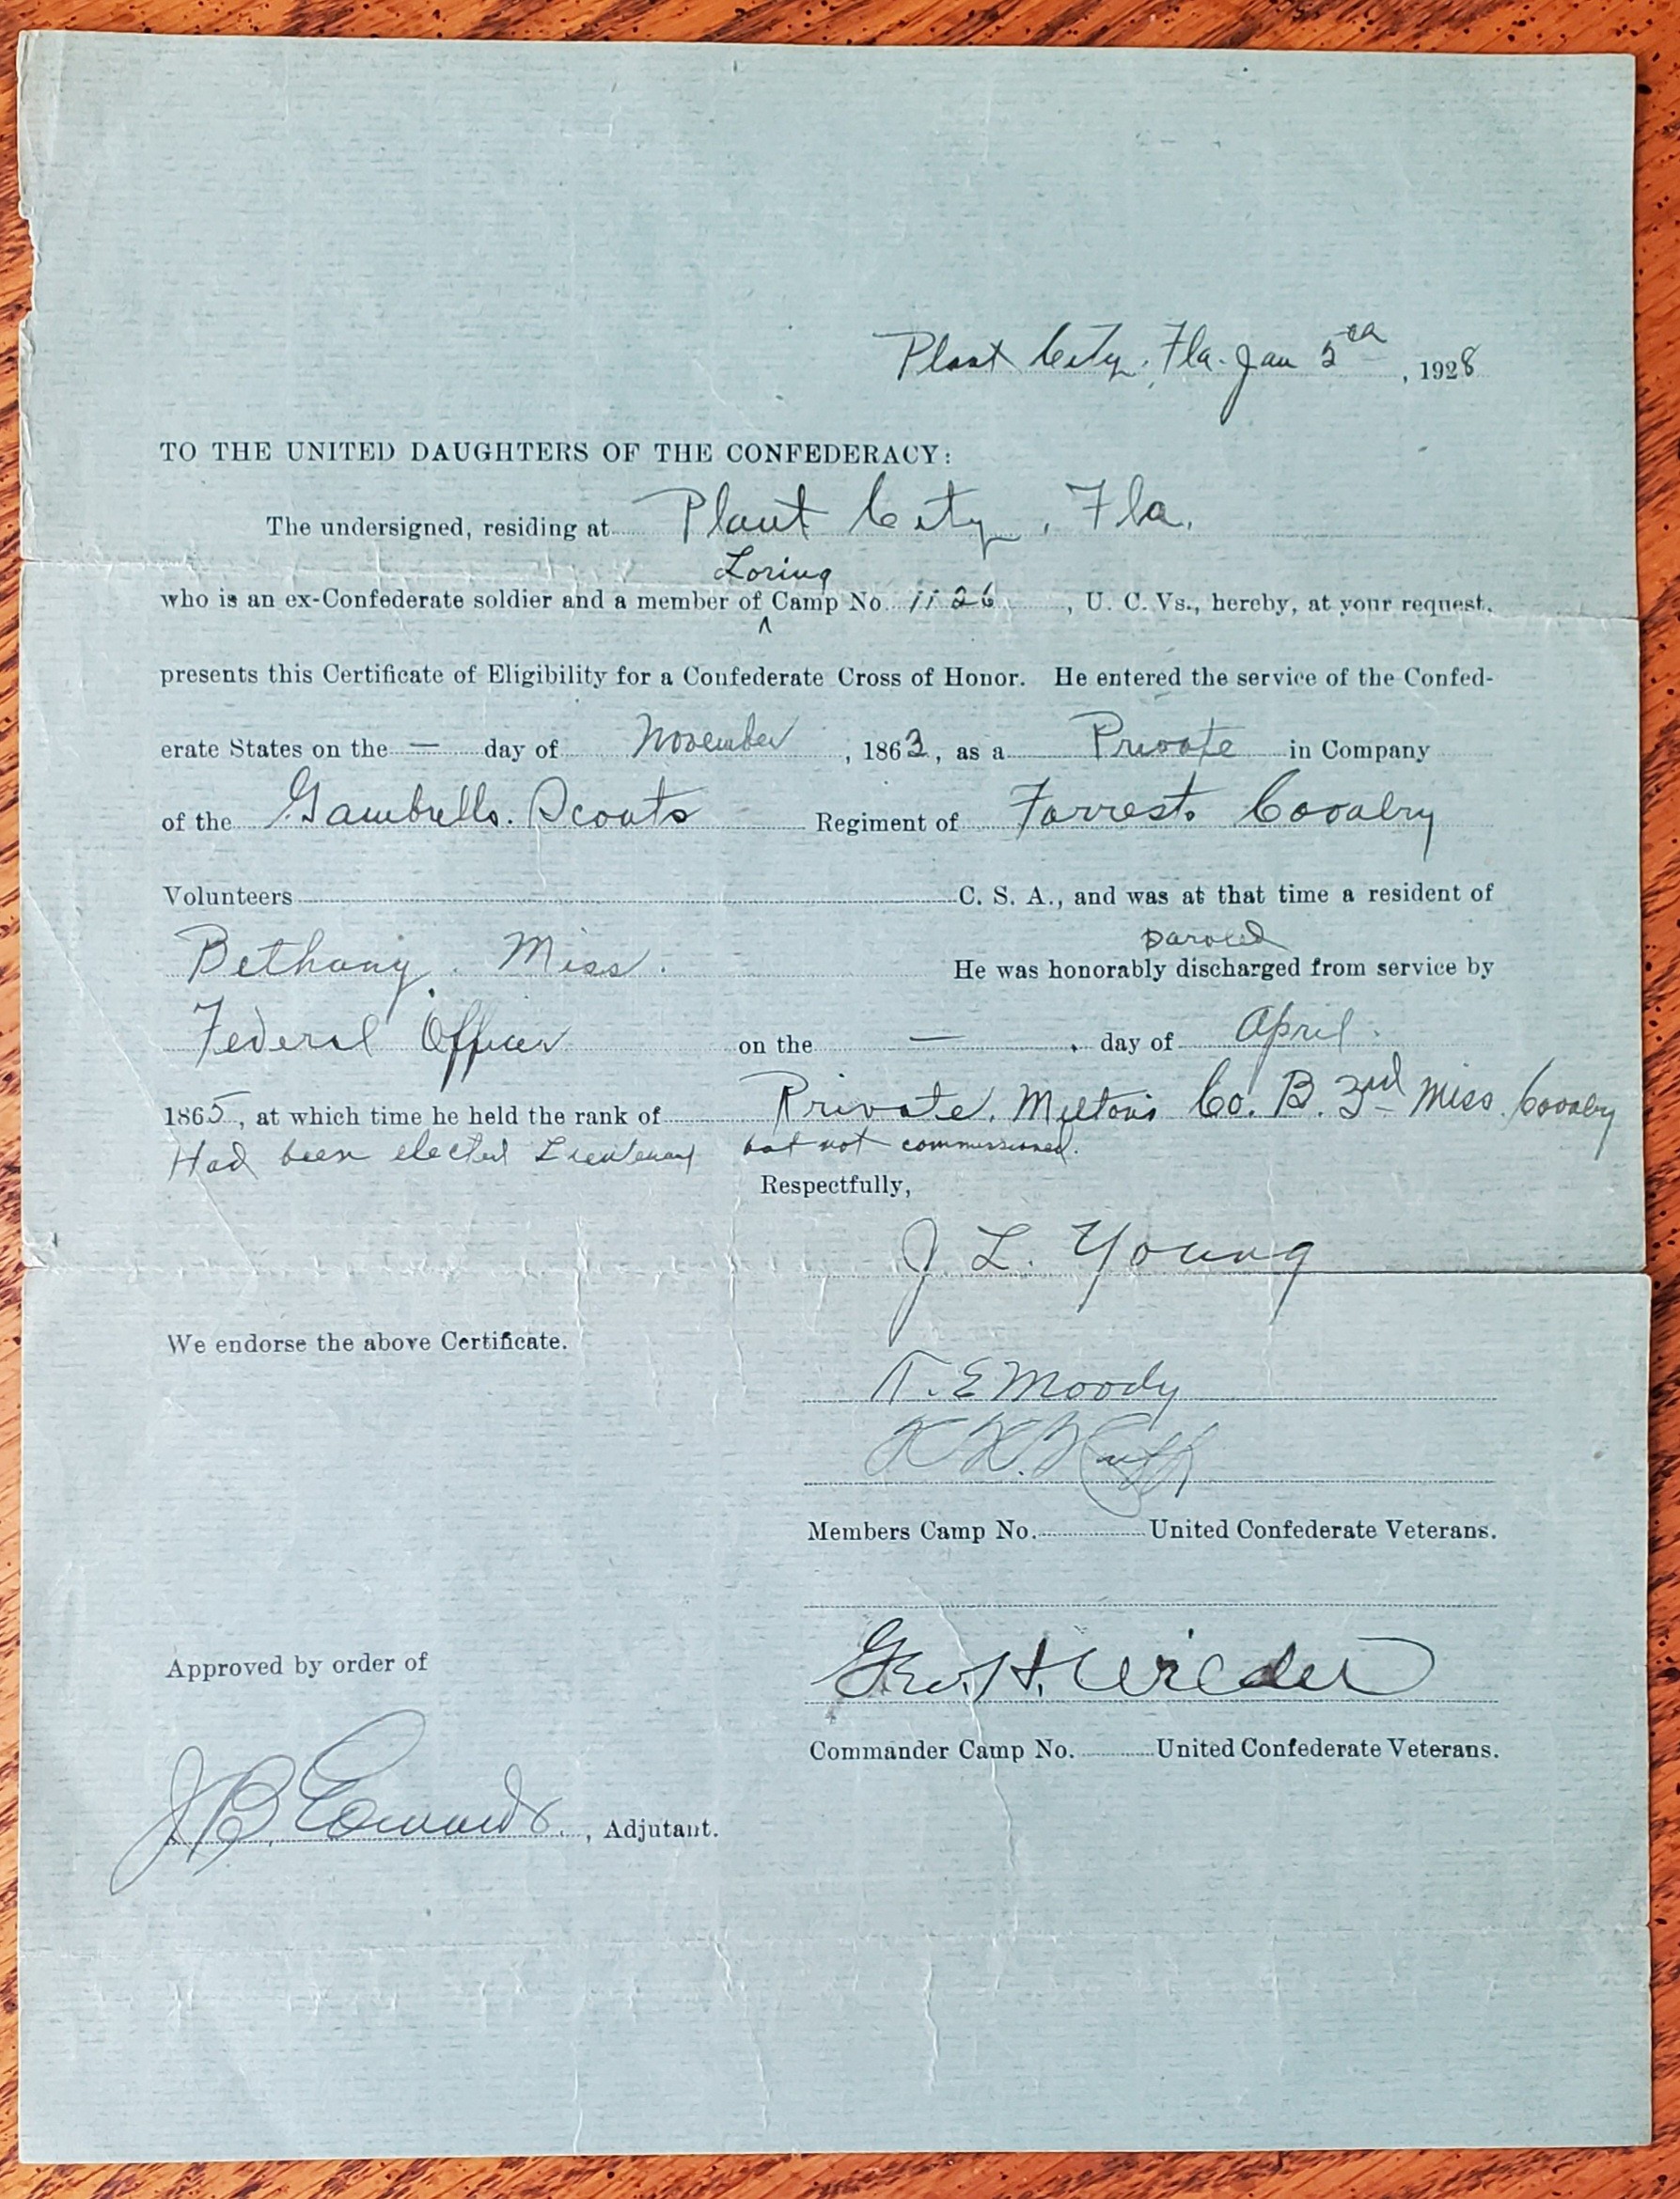 Plant City, Fla. Jan 5th, 1928
TO THE UNITED DAUGHTERS OF THE CONFEDERACY:
The undersigned, residing at Plant City, Fla.
Loring
who is an ex-Confederate soldier and a member of ^ Camp No. 1126, U. C. Vs., hereby, at your request,
presents this Certificate of Eligibility for a Confederate Cross of Honor. He entered the service of the Confed-
erate States on the — day of November, 1863, as a Private in Company
of the Gambrells. Scouts Regiment of Forrests Cavalry
Volunteers C. S. A., and was at that time a resident of
paroled
Bethany, Miss. He was honorably discharged from service by
Federal Officer on the — day of April.
1865, at which time he held the rank of Private. Co. B. 3rd Miss Cavalry
Had been elected Lieutenant but not commissioned.
Respectfully,
J. L. Young
We endorse the above Certificate.
T. E Moody
Members Camp No. United Confederate Veterans.
Approved by order of
Geo. H. Wilder
Commander Camp No. United Confederate Veterans.
J. B. Edwards, Adjutant.